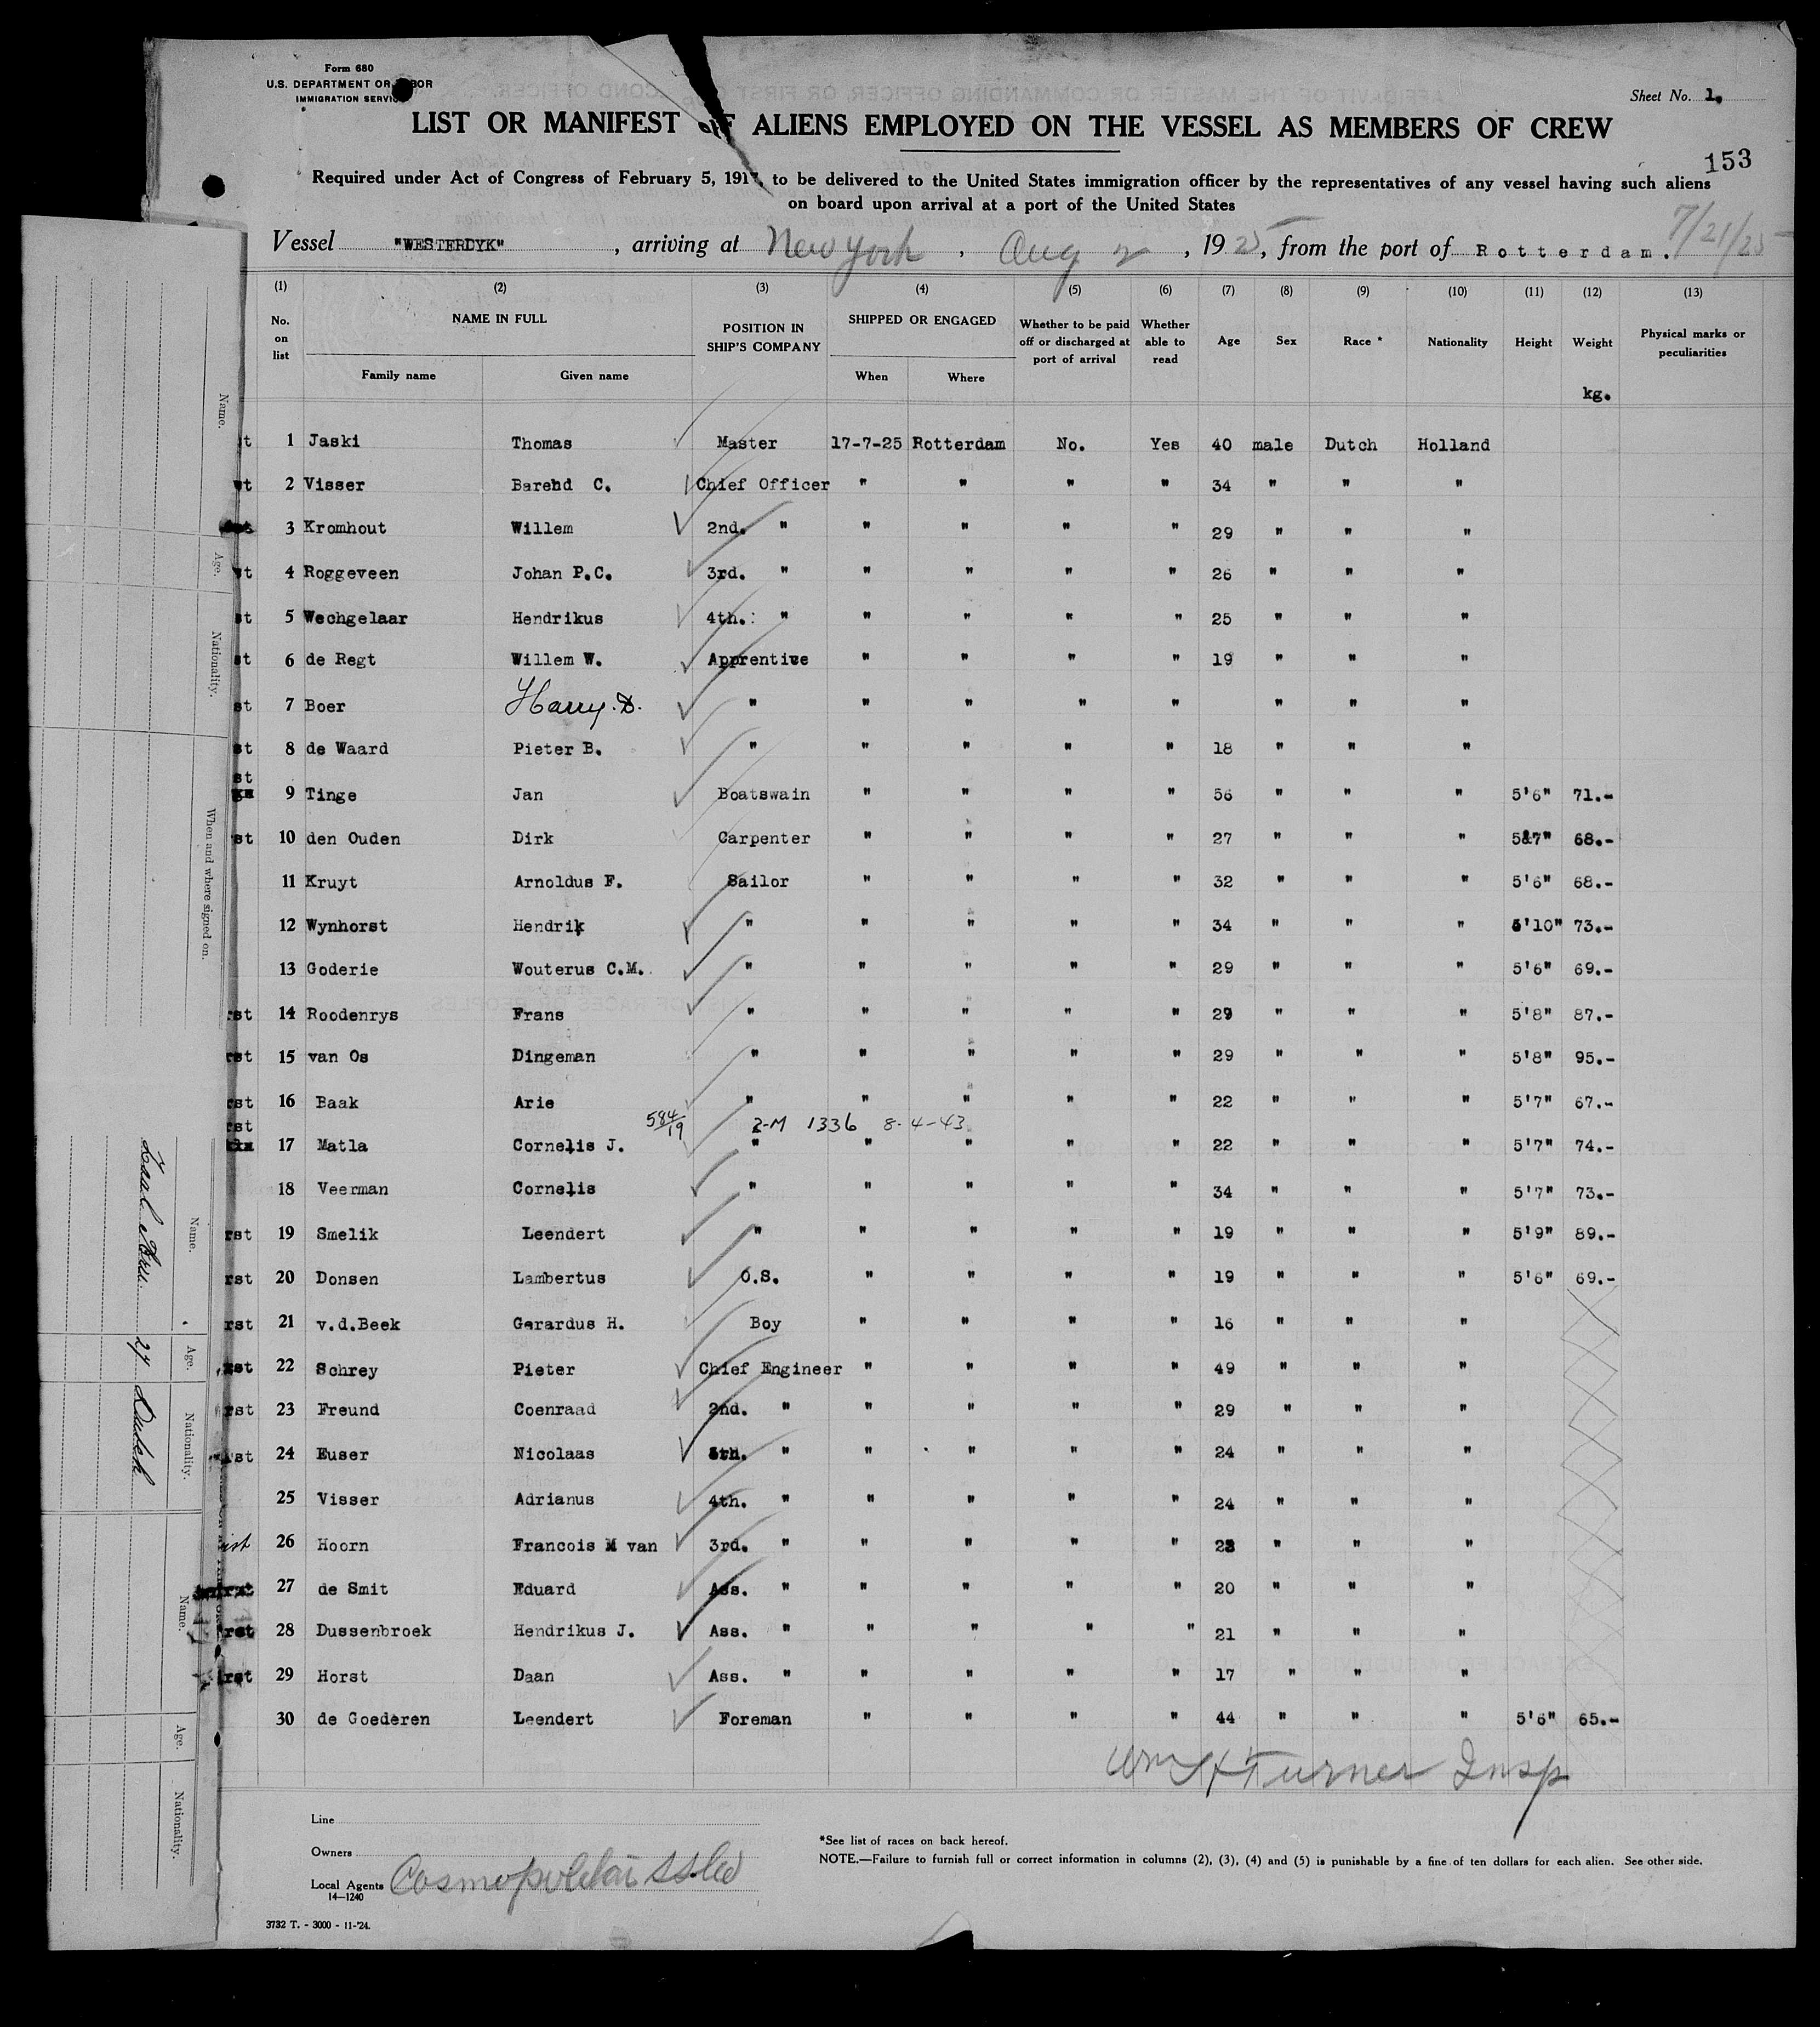 Form 680
U.S. DEPARTMENT OF LABOR
IMMIGRATION SERVICE
Sheet No. 1.
LIST OR MANIFEST OF ALIENS EMPLOYED ON THE VESSEL AS MEMBERS OF CREW
153
Required under Act of Congress of February 5, 1917, to be delivered to the United States immigration officer by the representatives of any vessel having such aliens
on board upon arrival at a port of the United States
7/21/25
Vessel "WESTERDYK", arriving at New York, Aug 2, 1925, from the port of Rotterdam.
(1) (2) (3) (4) (5) (6) (7) (8) (9) (10) (11) (12) (13)
No. on list NAME IN FULL Family name Given name POSITION IN SHIP'S COMPANY SHIPPED OR ENGAGED When Where Whether to be paid off or discharged at port of arrival Whether able to read Age Sex Race * Nationality Height Weight Physical marks or peculiarities
kg.
1 Jaski Thomas Master 17-7-25 Rotterdam No. Yes 40 male Dutch Holland
2 Visser Barend C. Chief Officer " " " " 34 " " "
3 Kromhout Willem 2nd. " " " " " 29 " " "
4 Roggeveen Johan P.C. 3rd. " " " " " 26 " " "
5 Wechgelaar Hendrikus 4th. " " " " " 25 " " "
6 de Regt Willem W. Apprentive " " " " 19 " " "
7 Boer Harry. D. " " " " " " " "
8 de Waard Pieter B. " " " " " 18 " " "
9 Tinge Jan Boatswain " " " " 56 " " " 5'6" 71.-
10 den Ouden Dirk Carpenter " " " " 27 " " " 5&7" 68.-
11 Kruyt Arnoldus F. Sailor " " " " 32 " " " 5'6" 68.-
12 Wynhorst Hendrik " " " " " 34 " " " 5'10" 73.-
13 Goderie Wouterus C.M. " " " " " 29 " " " 5'6" 69.-
14 Roodenrys Frans " " " " " 29 " " " 5'8" 87.-
15 van Os Dingeman " " " " " 29 " " " 5'8" 95.-
16 Baak Arie " " " " " 22 " " " 5'7" 67.-
584/19 2-M 1336 8-4-43
17 Matla Cornelis J. " " " " " 22 " " " 5'7" 74.-
18 Veerman Cornelis " " " " " 34 " " " 5'7" 73.-
19 Smelik Leendert " " " " " 19 " " " 5'9" 89.-
20 Donsen Lambertus O.S. " " " " 19 " " " 5'6" 69.-
21 v.d.Beek Gerardus H. Boy " " " " 16 " " "
22 Schrey Pieter Chief Engineer " " " " 49 " " "
23 Freund Coenraad 2nd. " " " " " 29 " " "
24 Euser Nicolaas " " " " " 24 " " "
25 Visser Adrianus 4th. " " " " " 24 " " "
26 Hoorn Francois M van 3rd. " " " " " " " "
27 de Smit Eduard Ass. " " " " " 20 " " "
28 Dussenbroek Hendrikus J. Ass. " " " " " 21 " " "
29 Horst Daan Ass. " " " " " 17 " " "
30 de Goederen Leendert Foreman " " " " 44 " " " 5'6" 65.-
Wm H Turner Insp
Line
Owners
Local Agents Cosmopolitan SS Co
14—1240
3732 T. - 3000 - 11-'24.
*See list of races on back hereof.
NOTE.—Failure to furnish full or correct information in columns (2), (3), (4) and (5) is punishable by a fine of ten dollars for each alien. See other side.
Name. Age. Nationality. When and where signed on.
Name. Age. Nationality.
27 Dutch
Name. Age. Nationality.